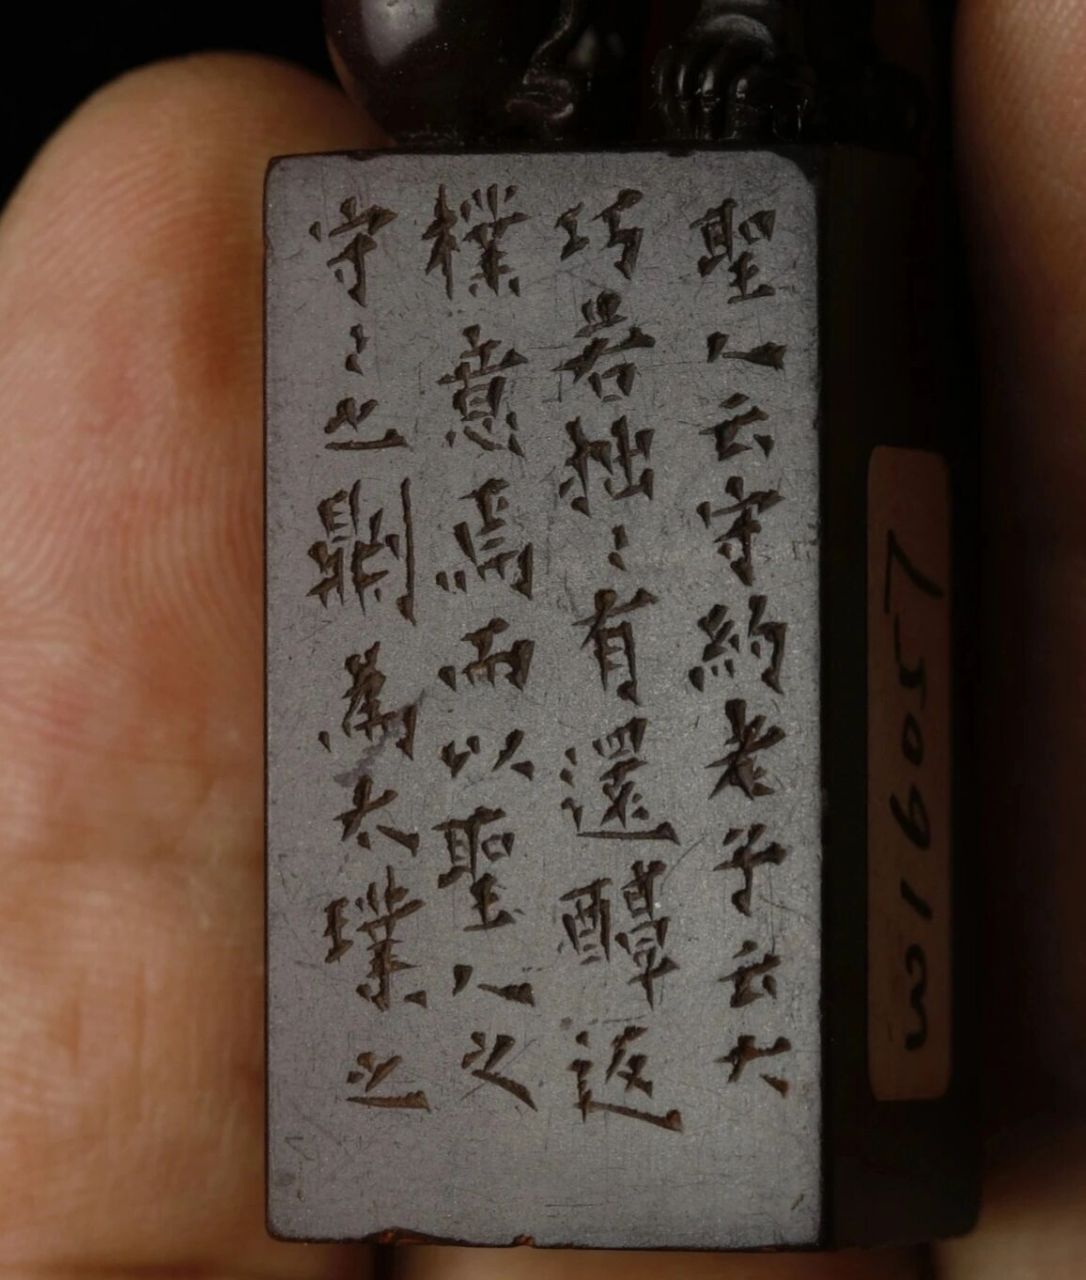 聖人云守約老子云大
巧若拙〻有還醇返
樸意焉而以聖人之
守〻之則為太璞之
L5091m